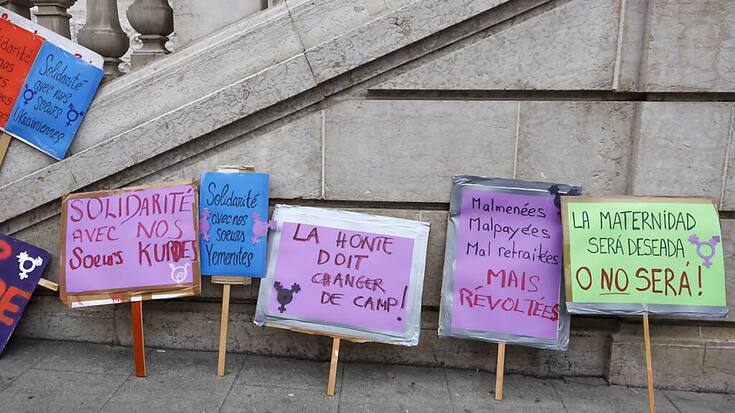 Solidarité
avec nos
Soeurs
Ukrainiennes
SOLIDARITÉ
AVEC NOS
Soeurs KURDES
Solidarité
avec nos
soeurs
Yemenites
LA HONTE
DOIT
CHANGER
DE CAMP!
Malmenées
Malpayées
Mal retraitées
MAIS
RÉVOLTÉES
LA MATERNIDAD
SERÁ DESEADA
O NO SERÁ!